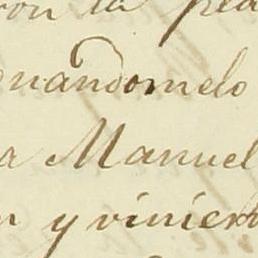 ron la
nandomelo
a Manuel
n y viniero